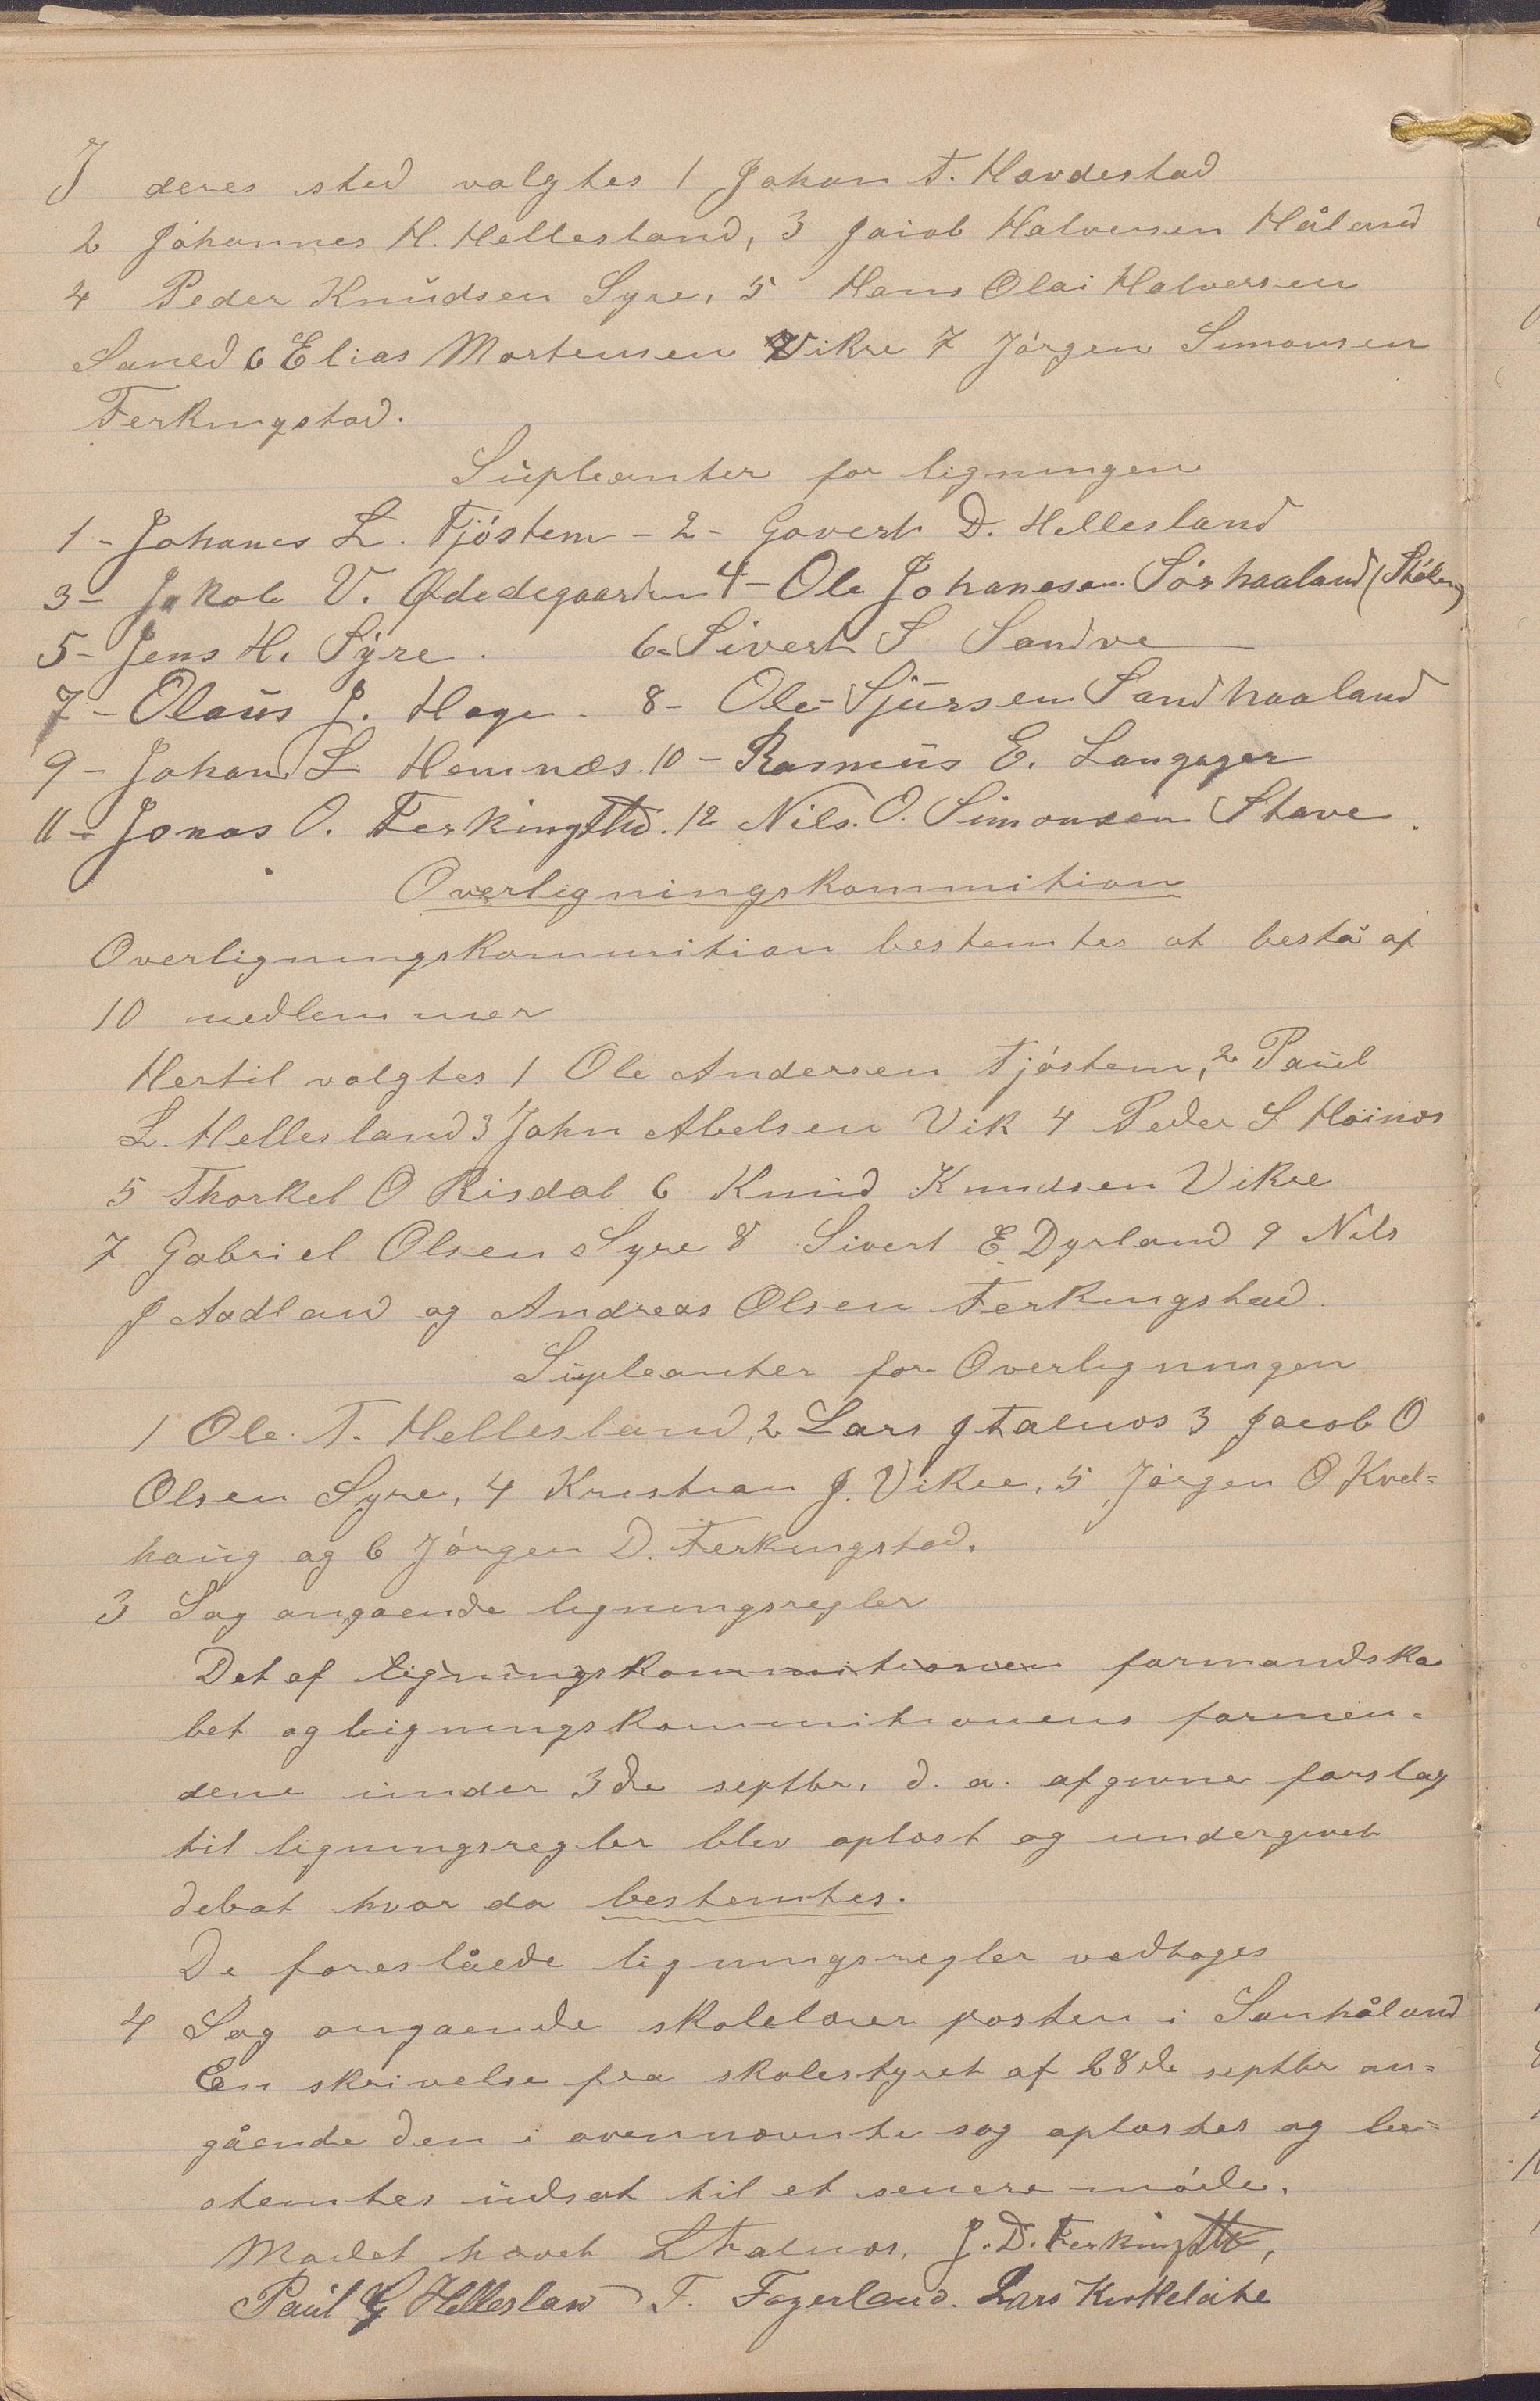 I deres sted valgtes 1 Johan T. Havdestad
2 Johannes H. Hellesland, 3 Jacob Halversen Håland
4 Peder Knudsen Syre, 5 Hans Olai Halversen
Saned 6 Elias Mortensen Vikre 7 Jórgen Simonsen
Ferkingstad.
Supleanter for ligningen
1 - Johanes L. Tjóstem - 2 - Govert D. Hellesland
3 - Jakob V. Ødedegaarden 4 - Ole Johanesen Sórhaaland (Stólen)
5 - Jens H. Syre. 6 - Sivert S Sandve
7 - Olaus J. Hage. 8 - Ole Sjursen Sandhaaland
9 - Johan L Hemnes. 10 - Rasmus E. Langager
11 - Jonas O. Ferkingstd. 12 Nils. O. Simonsen Stave.
Overligningskommition
Overligningskommition bestemtes at bestå af
10 medlemmer
Hertil valgtes 1 Ole Andersen Tjóstem, 2 Paul
L. Hellesland 3 John Abelsen Vik 4 Peder S Hóinos
5 Thorkel O Risdal 6 Knud Knudsen Vikre
7 Gabriel Olsen Syre 8 Sivert E. Dyrland 9 Nils
J Aadland og Andreas Olsen Ferkingstad.
Supleanter for Overligningen
1 Ole T. Hellesland, 2 Lars J Falnos 3 Jacob O
Olsen Syre, 4 Kristian J. Vikre, 5 Jórgen O Kvel=
haug og 6 Jórgen D. Ferkingstad.
3 Sag angaende ligningsregler
Det af ligningskommitionen formandska
bet og ligningskommitionens formen=
dene under 3de septbr. d. a. afgivne forslag
til ligningsregler blev oplæst og undergivet
debat hvor da bestemtes.
De foreslåede ligningsregler vedtoges
4 Sag angaende skolelærer posten i Sanhåland
En skrivelse fra skolestyret af 28de septbr an=
gående den i ovennævnte sag oplæstes og be=
stemtes udsat til et senere móde.
Modet hævet L Falnos, J. D. Ferkingstd,
Paul G Hellesland T. Fagerland. Lars Kr Heleite